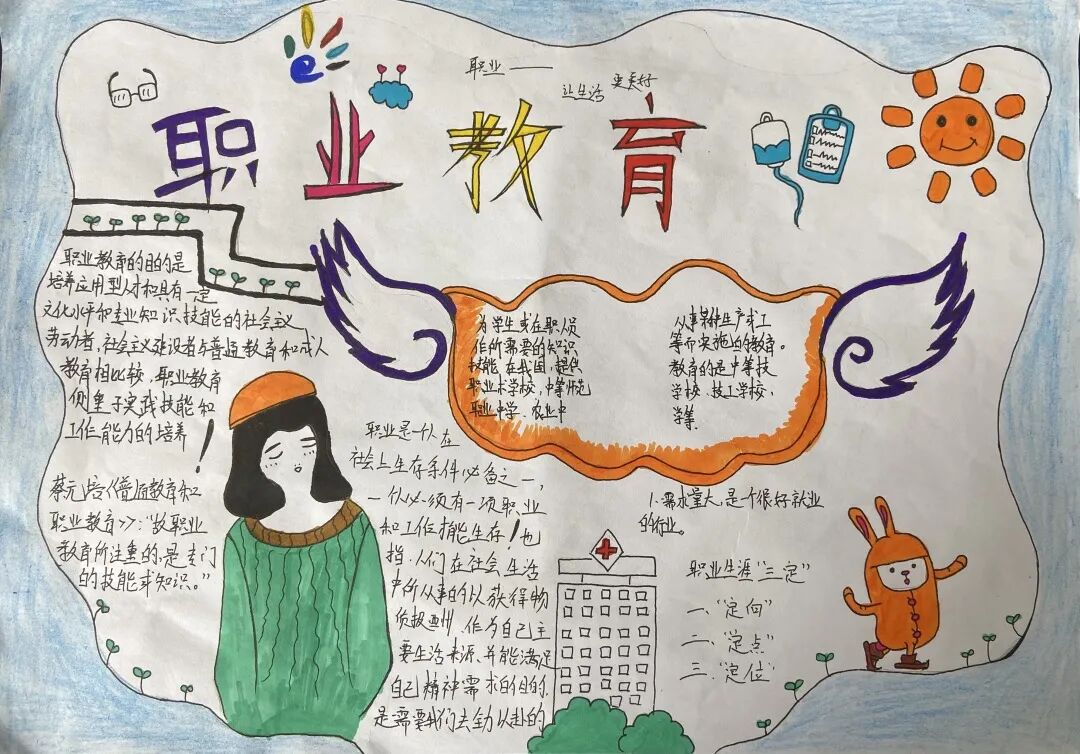 职业——
让生活 更美好
职业教育
职业教育的目的是
培养应用型人才和具有一定
文化水平和专业知识技能的社会主义
劳动者,社会主义建设者与普通教育和成人
教育相比较,职业教育
侧重于实践技能和
工作能力的培养!
蔡元培《普通教育和
职业教育》:“故职业
教育所注重的是专门
的技能或知识。”
为学生或在职人员
作所需要的知识
技能,在我国,提供
职业术学校,中等师范
职业中学、农业中
从事某种生产或工
等而实施的教育。
教育的是中等技
学校、技工学校,
学等.
职业是一个人在
社会上生存条件必备之一,
一个人必须有一项职业
和工作才能生存!也
指:人们在社会生活
中所从事的以获得物
质报酬,作为自己主
要生活来源、并能满足
自己精神需求的目的.
是需要我们去全力以赴的
1.需求量大,是个很好就业
的行业。
职业生涯“三定”
一、“定向”
二、“定点”
三、“定位”